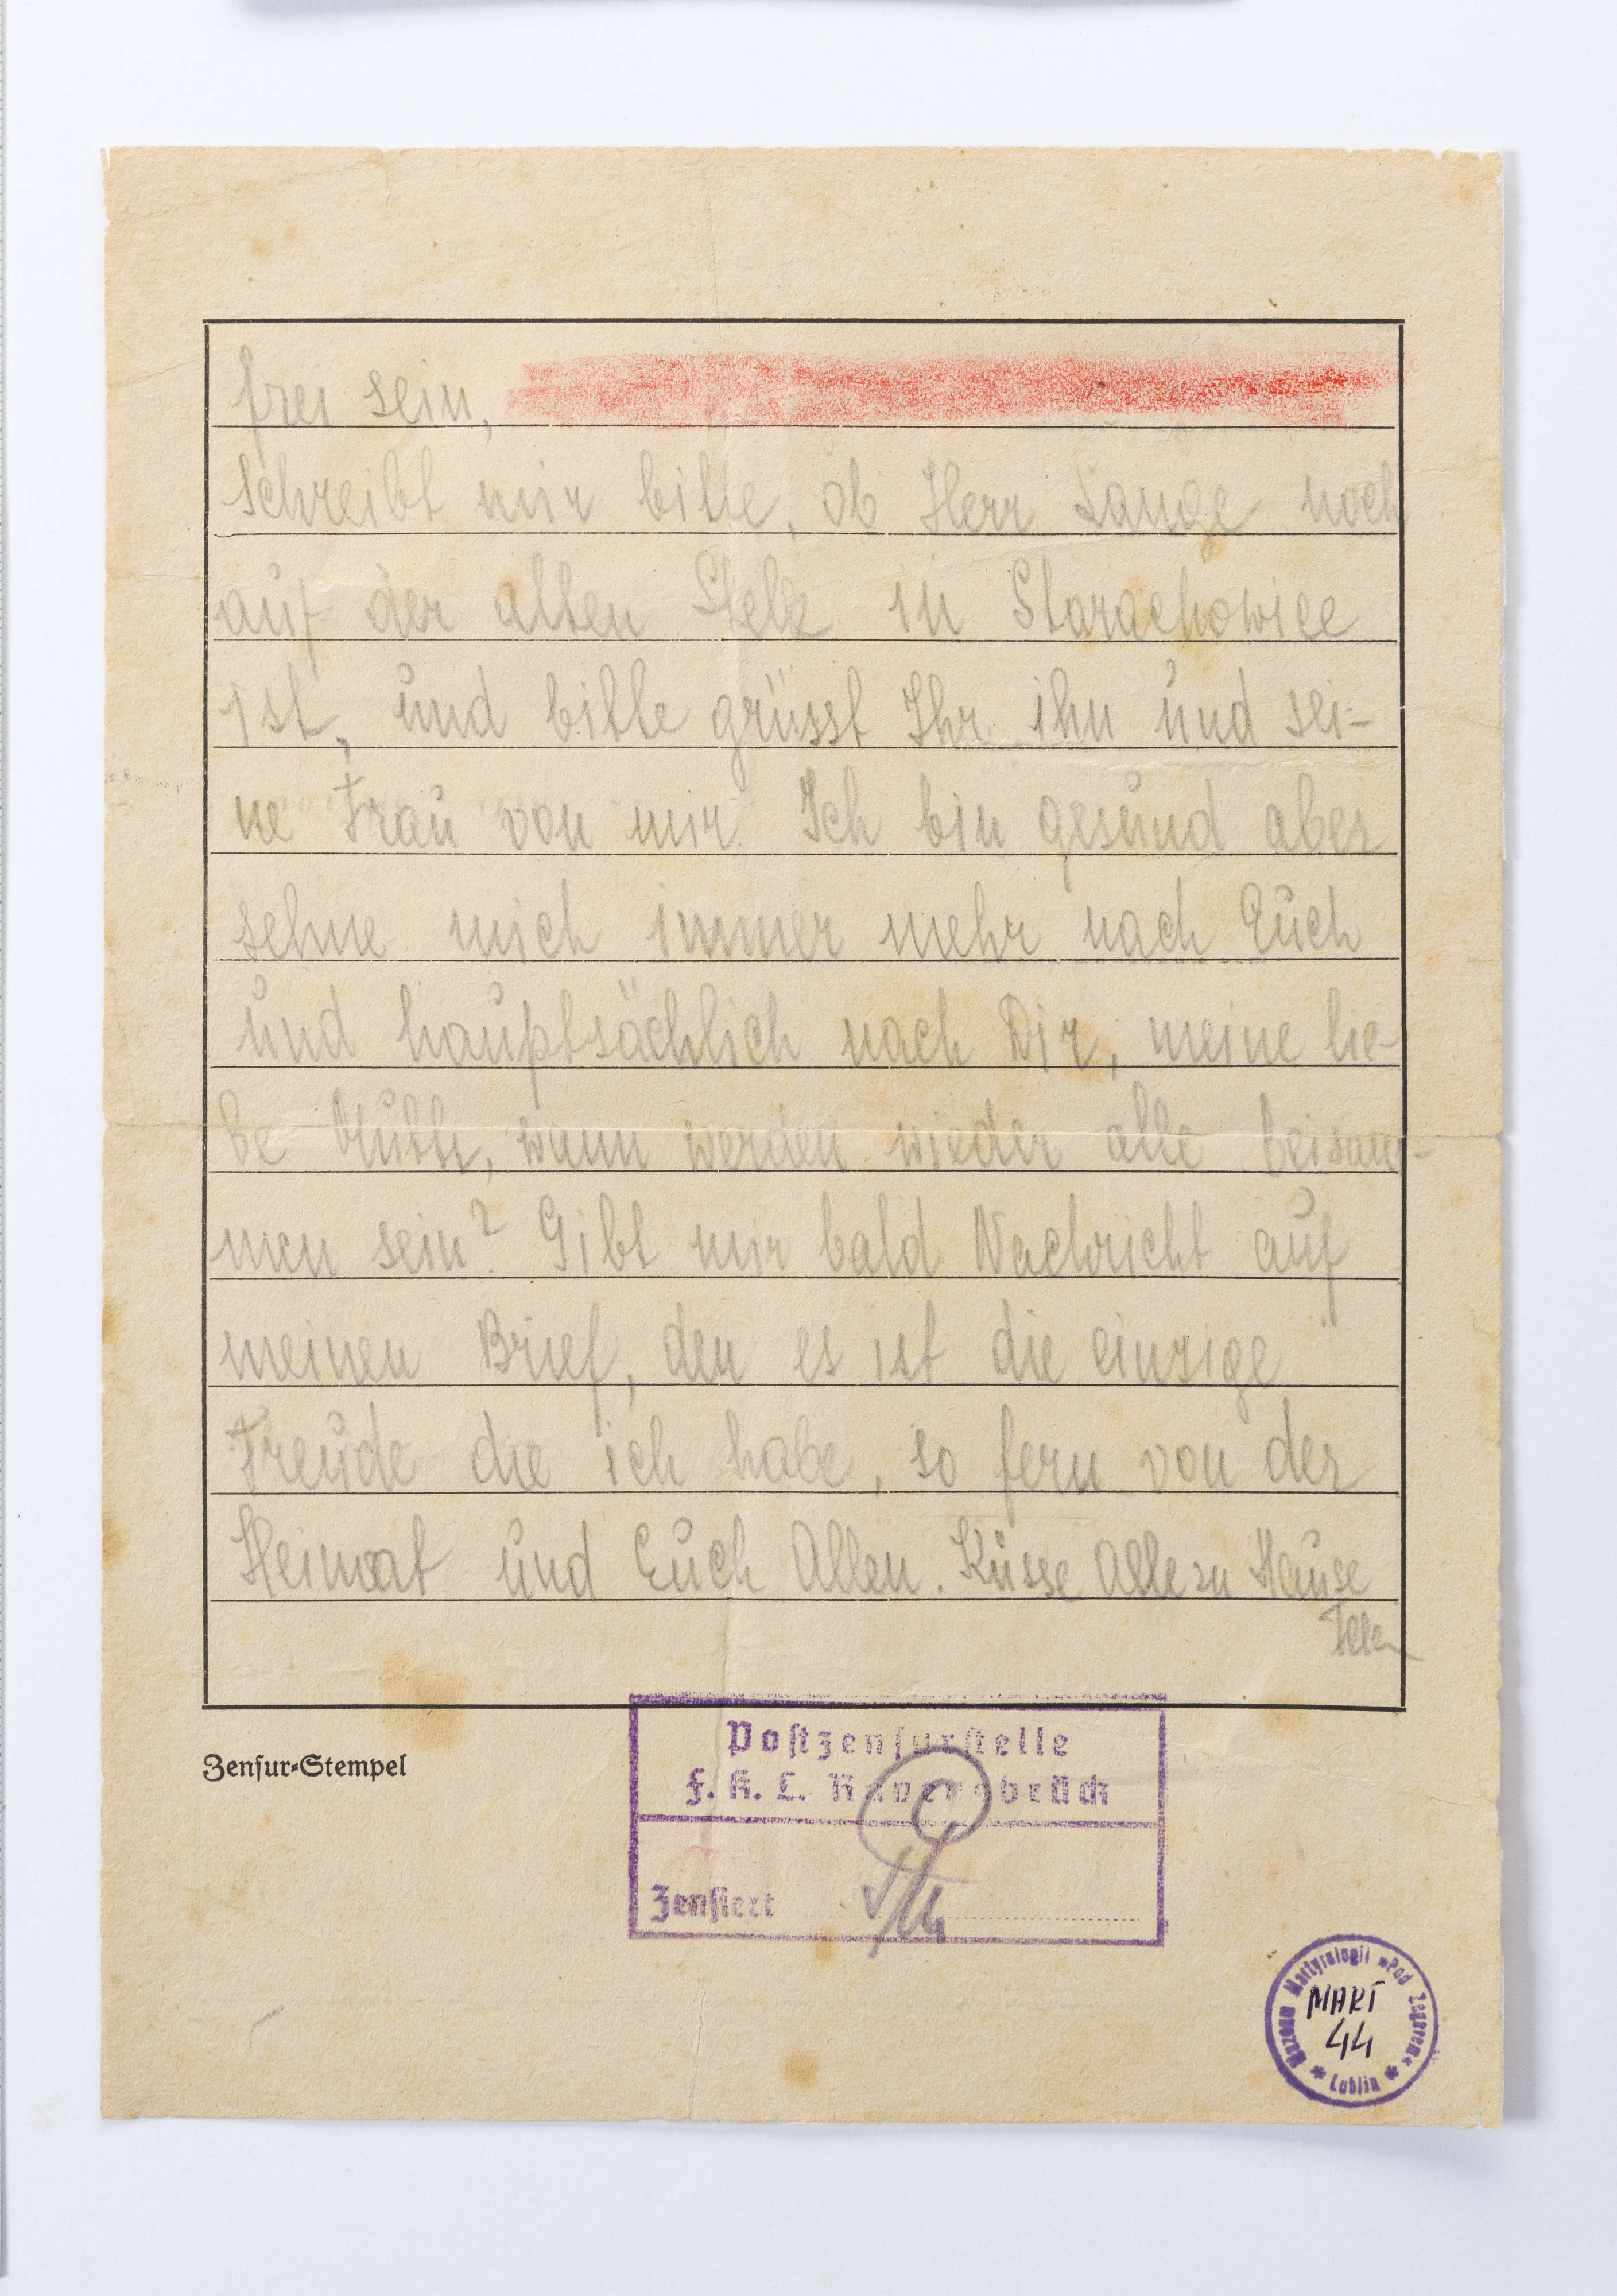 frei sein,
schreibt mir bitte, ob Herr Lange noch
auf der alten Stelle in Starachowice
ist, und bitte grüsst Ihr ihn und sei-
ne Frau von mir. Ich bin gesund aber
sehne mich immer mehr nach Euch
und hauptsächlich nach Dir, meine lie-
be Mutti, wann werden wieder alle beisam-
men sein? Gibt mir bald Nachricht auf
meinen Brief, den es ist die einzige
Freude die ich habe, so fern von der
Heimat und Euch Allen. Küsse Alle zu Hause
Zensur-Stempel
Postzensurstelle
F. K. L. Ravensbrück
Zensiert
Muzeum Martyrologii »Pod Zegarem«
* Lublin *
MART
44